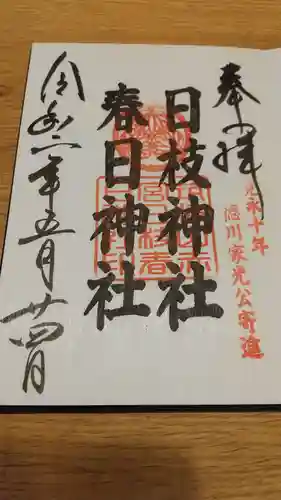 奉拝
寛永十年
徳川家光公寄進
日枝神社
春日神社
令和六年五月廿四日